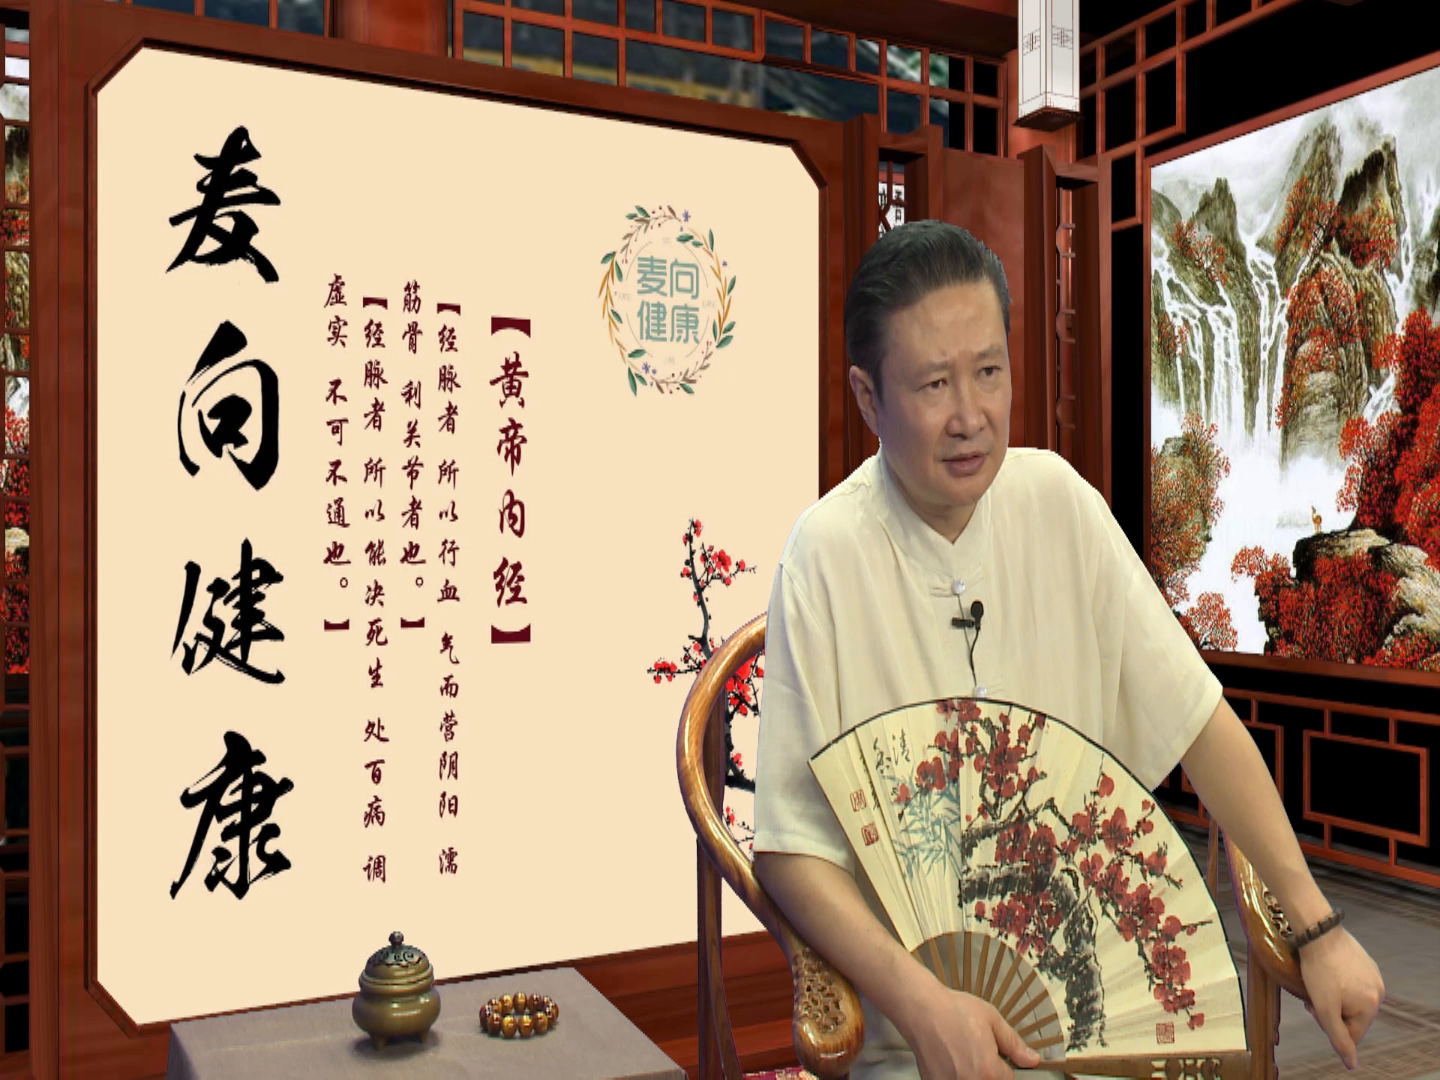 麦向健康
麦向
健康
【黄帝内经】
【经脉者 所以行血 气而营阴阳 濡
筋骨 利关节者也。】
【经脉者 所以能决死生 处百病 调
虚实 不可不通也。】
清